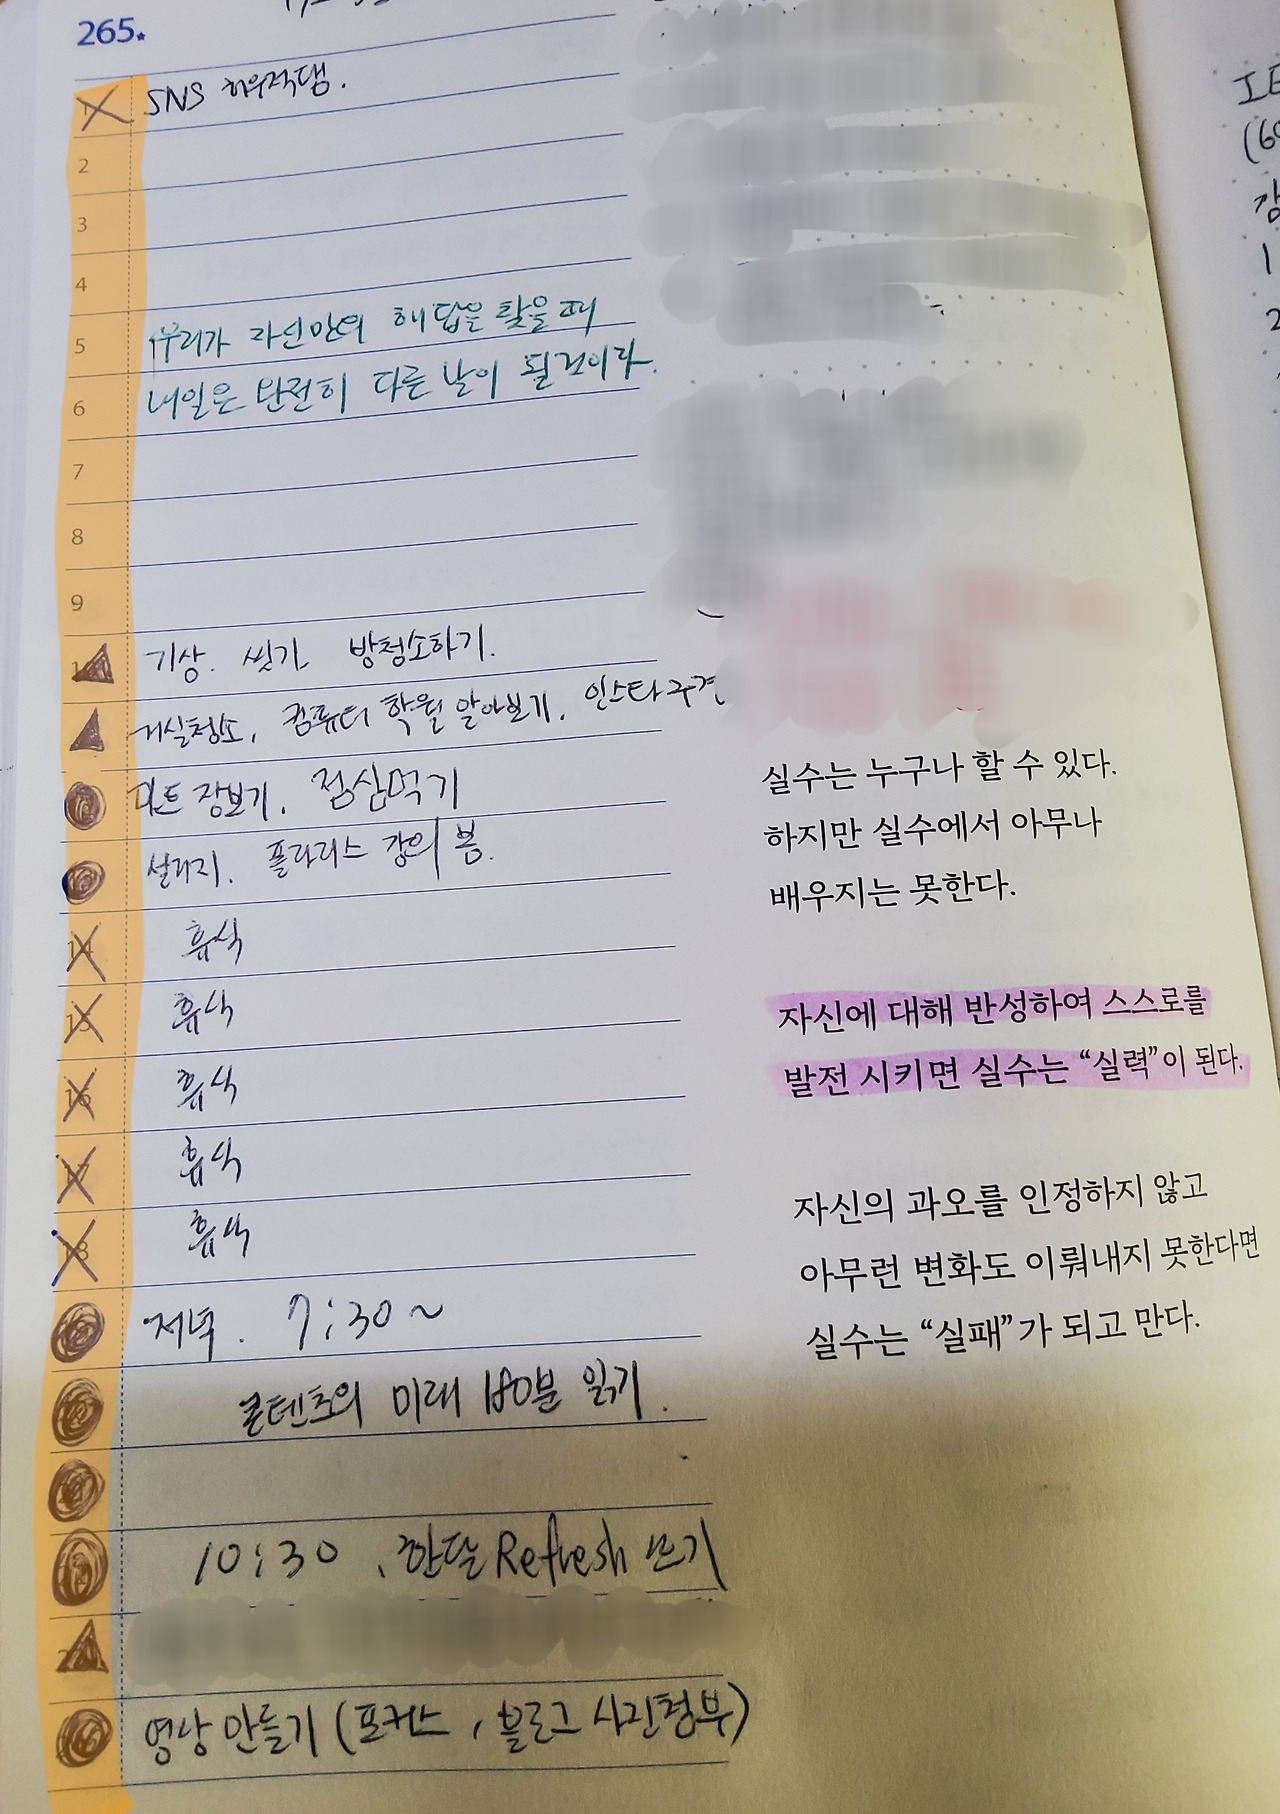 265.
SNS 허우적댐.
2
3
4
5 우리가 자신만의 해답을 찾을 때
6 내일은 완전히 다른 날이 될것이다.
7
8
9
기상. 씻기 방청소하기.
거실청소, 컴퓨터 학원 알아보기, 인스타 구경
마트 장보기, 점심먹기
설거지. 폴라리스 강의 봄.
휴식
휴식
휴식
휴식
휴식
저녁. 7:30~
콘텐츠의 미래 180분 읽기.
10:30 , 한달 Refresh 쓰기
영상 만들기 (포커스, 블로그 사진첨부)
실수는 누구나 할 수 있다.
하지만 실수에서 아무나
배우지는 못한다.
자신에 대해 반성하여 스스로를
발전 시키면 실수는 “실력”이 된다.
자신의 과오를 인정하지 않고
아무런 변화도 이뤄내지 못한다면
실수는 “실패”가 되고 만다.